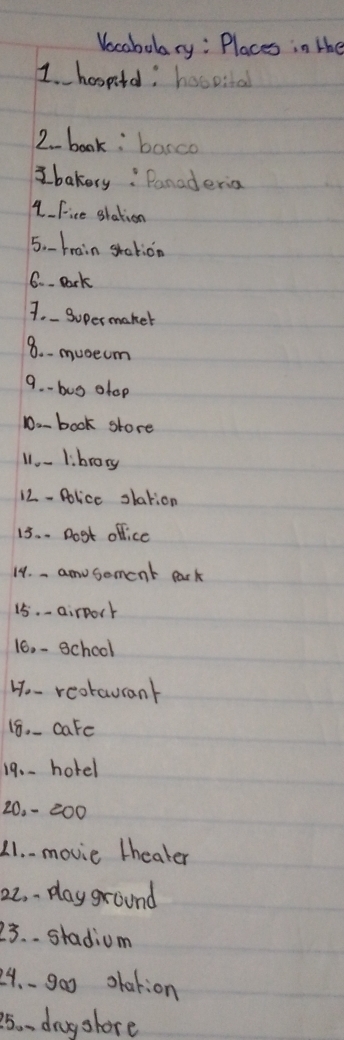 Vocabulary: Places in the
1.- hospital: hospital
2.- bank: banco
3.- bakery: Panaderia
4.- fire station
5.- train station
6.- Park
7.- Supermaket
8.- museum
9.- bus stop
10.- book store
11.- library
12.- Police station
13.- Post office
14.- amusement Park
15.- airport
16.- School
17.- restaurant
18.- cafe
19.- hotel
20.- zoo
21.- movie theater
22.- Play ground
23.- stadium
24.- gas station
25.- drugstore